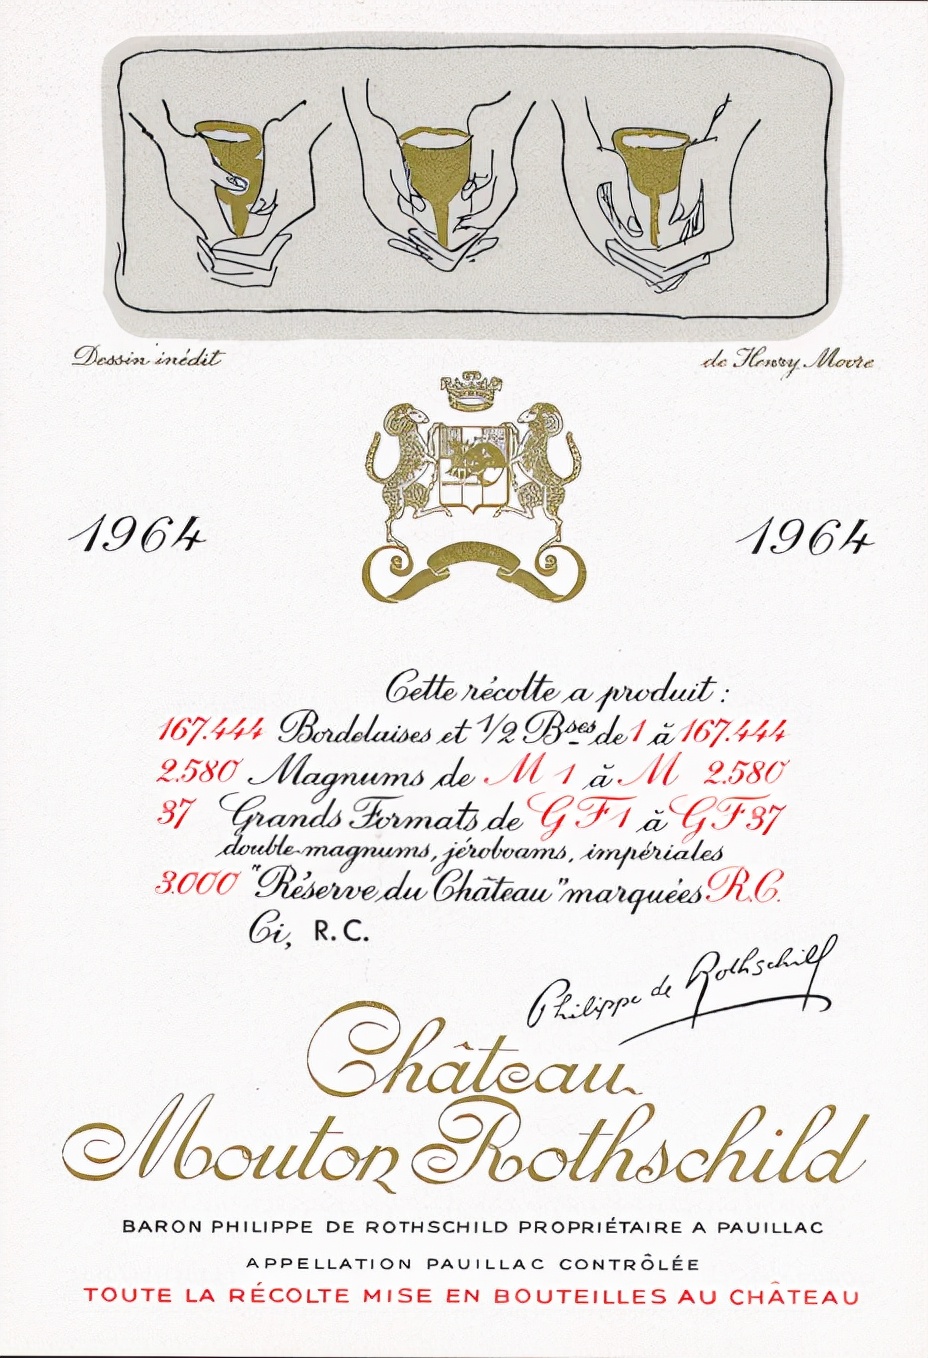 Dessin inédit
de Henry Moore
1964
1964
Cette récolte a produit :
167.444 Bordelaises et 1/2 Bses de 1 à 167.444
2.580 Magnums de M 1 à M 2.580
37 Grands Formats de GF1 à GF37
double-magnums, jéroboams, impériales
3.000 "Réserve du Château" marquées R.C.
Ci, R.C.
Philippe de Rothschild
Château
Mouton Rothschild
BARON PHILIPPE DE ROTHSCHILD PROPRIÉTAIRE A PAUILLAC
APPELLATION PAUILLAC CONTRÔLÉE
TOUTE LA RÉCOLTE MISE EN BOUTEILLES AU CHÂTEAU